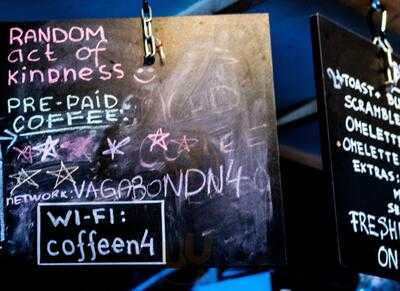 RANDOM
act of
kindness
PRE-PAID
COFFEE:
NETWORK: VAGABONDN4
WI-FI:
coffeen4
TOAST,
SCRAMBL
OMELETTE
OMELETTE
EXTRAS:
FRESH
ON